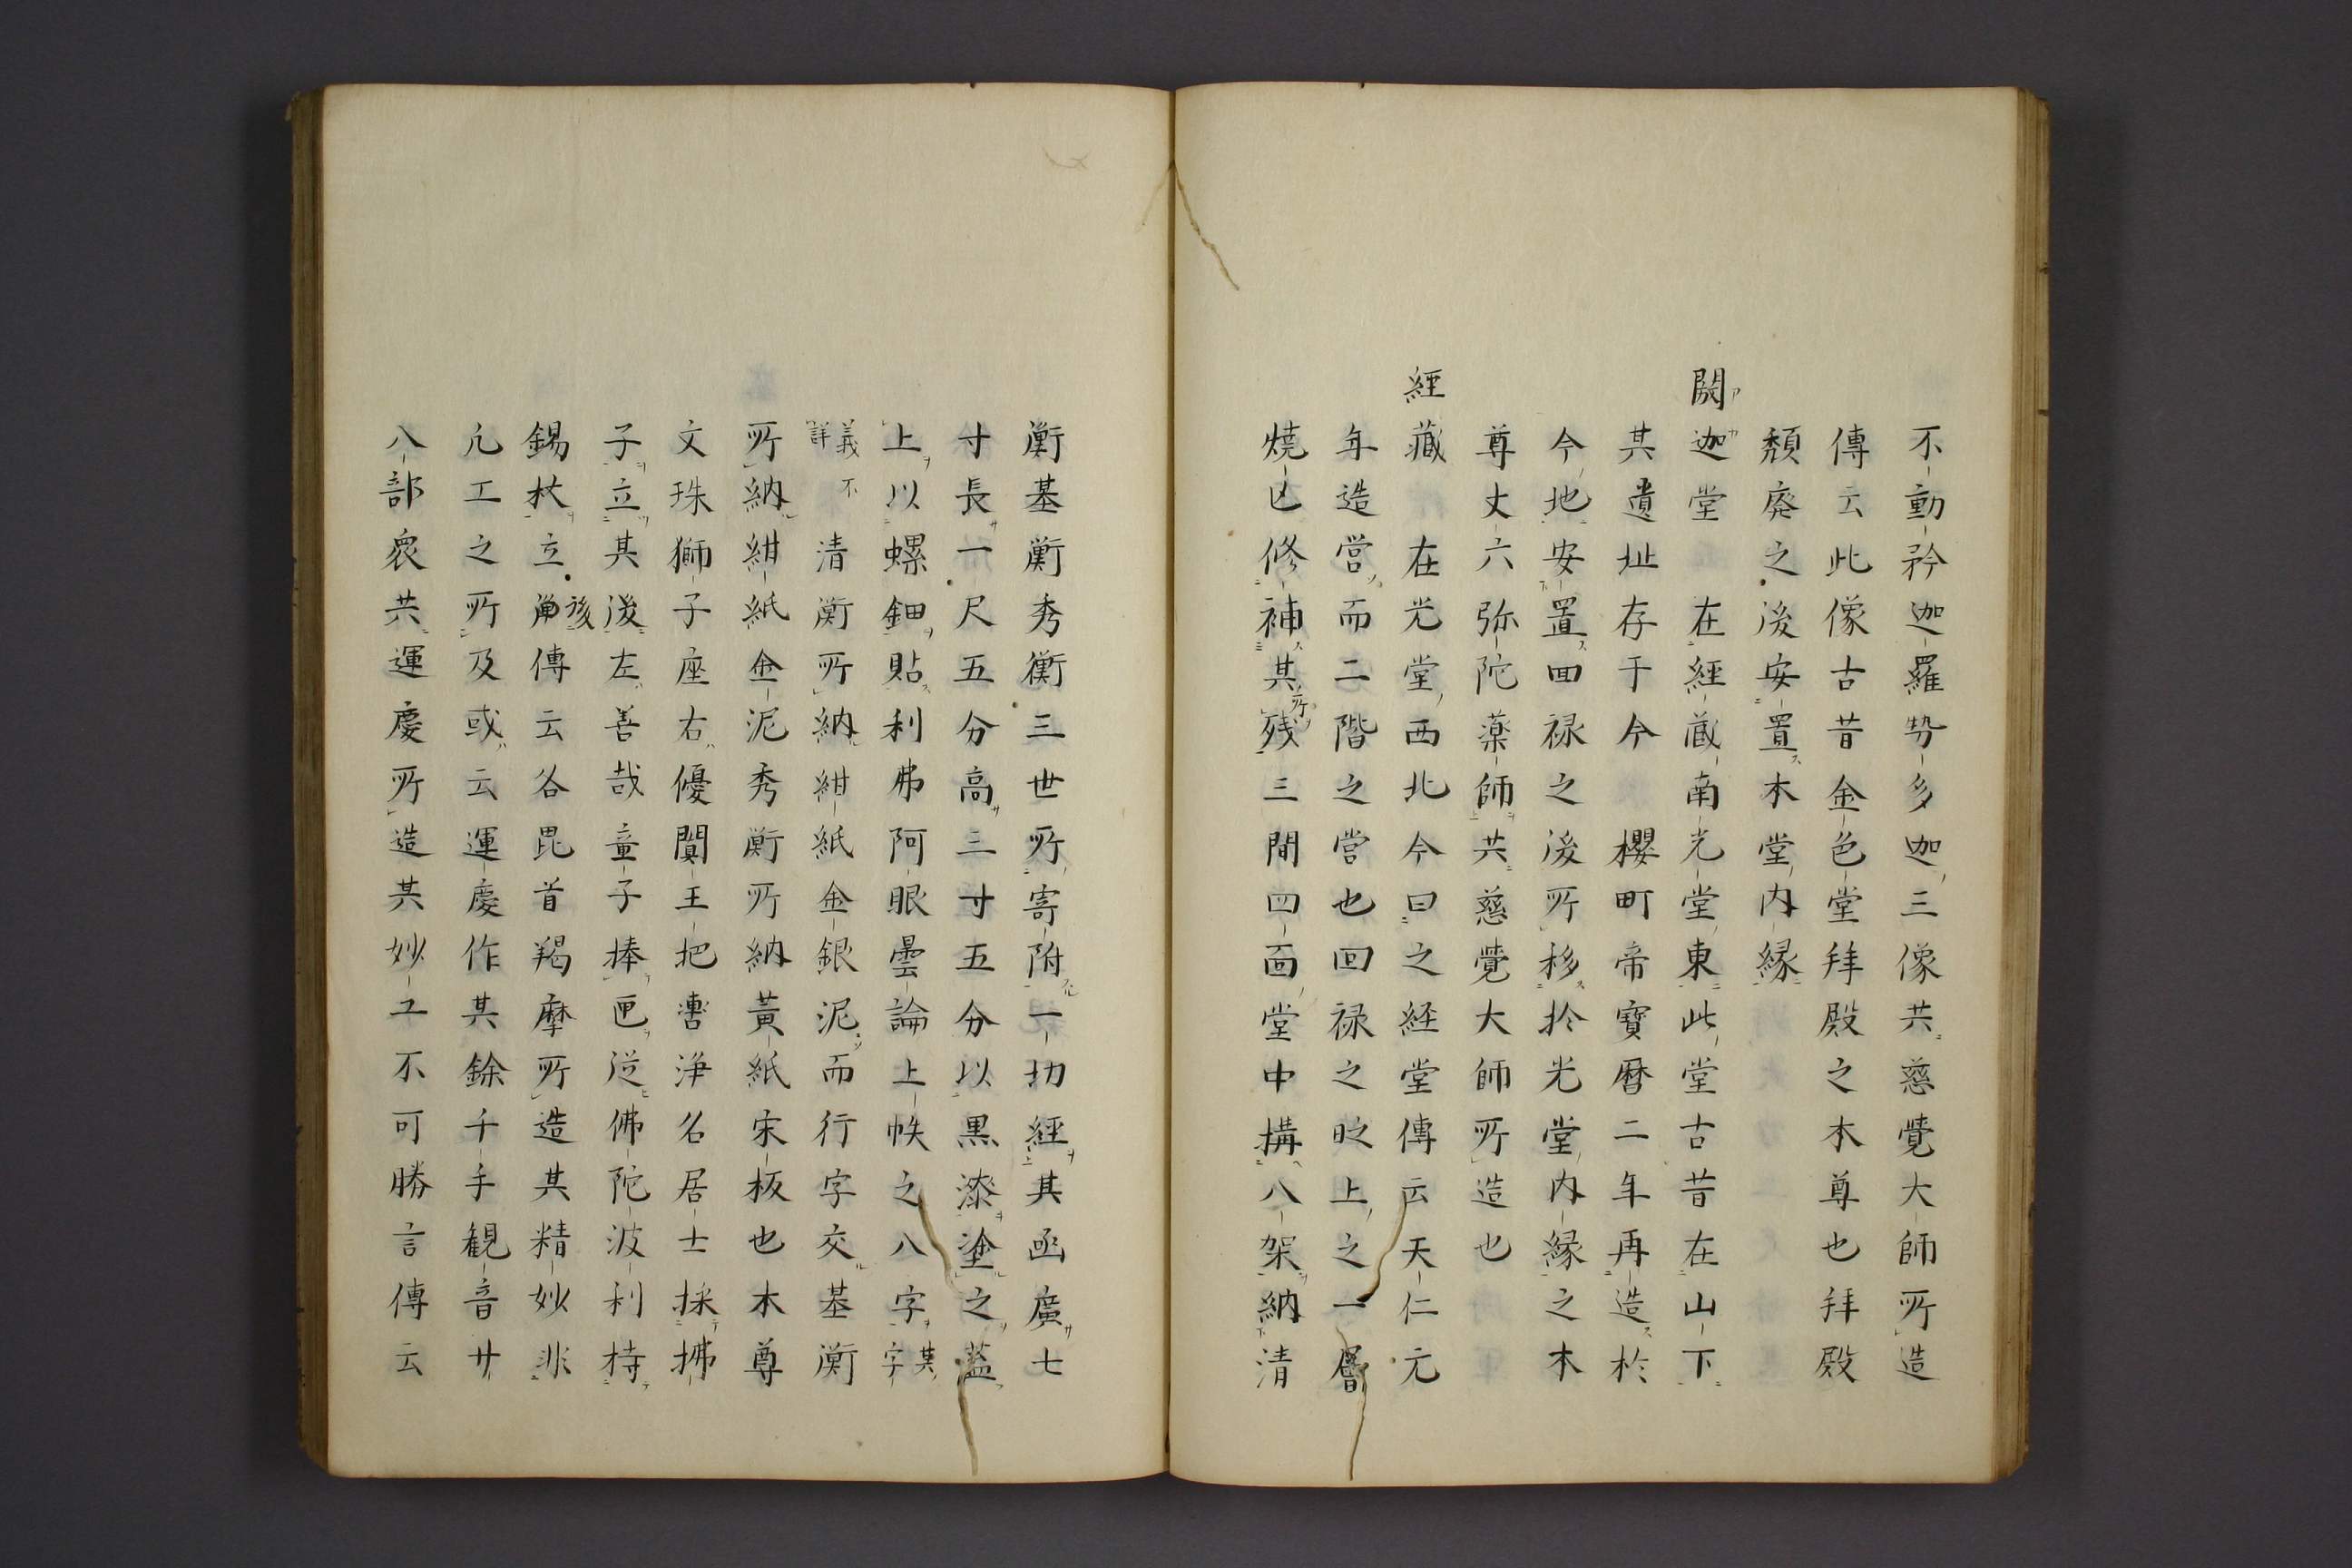 不動矜迦羅㔟多迦三像共慈覺大師所造
傳云此像古昔金色堂拜殿之本尊也拜殿
頽廃之後安置本堂内縁
閼迦堂　在經蔵南光堂東此堂古昔在山下
其遺址存于今　櫻町帝寶暦二年再造於
今地安置回禄之後所移於光堂内縁之本
尊丈六弥陀薬師共慈覺大師所造也
經藏　在光堂西北今曰之経堂傳云天仁元
年造営而二階之営也回禄之時上之一層
燒亡修補其所残三間四面堂中構八架納清
衡基衡秀衡三世所寄附一切經其函廣七
寸長一尺五分高三寸五分以黒漆塗之蓋
上以螺鈿貼利弗阿眼曇論上帙之八字其字
義不詳　清衡所納紺紙金銀泥而行字交基衡
所納紺紙金泥秀衡所納黄紙宋板也本尊
文珠獅子座右優闐王把轡浄名居士採拂
子立其後左善哉童子捧匣従佛陀波利持
錫杖立後傳云各毘首羯摩所造其精妙非
凢工之所及或云運慶作其餘千手観音廿
八部衆共運慶所造其妙工不可勝言傳云